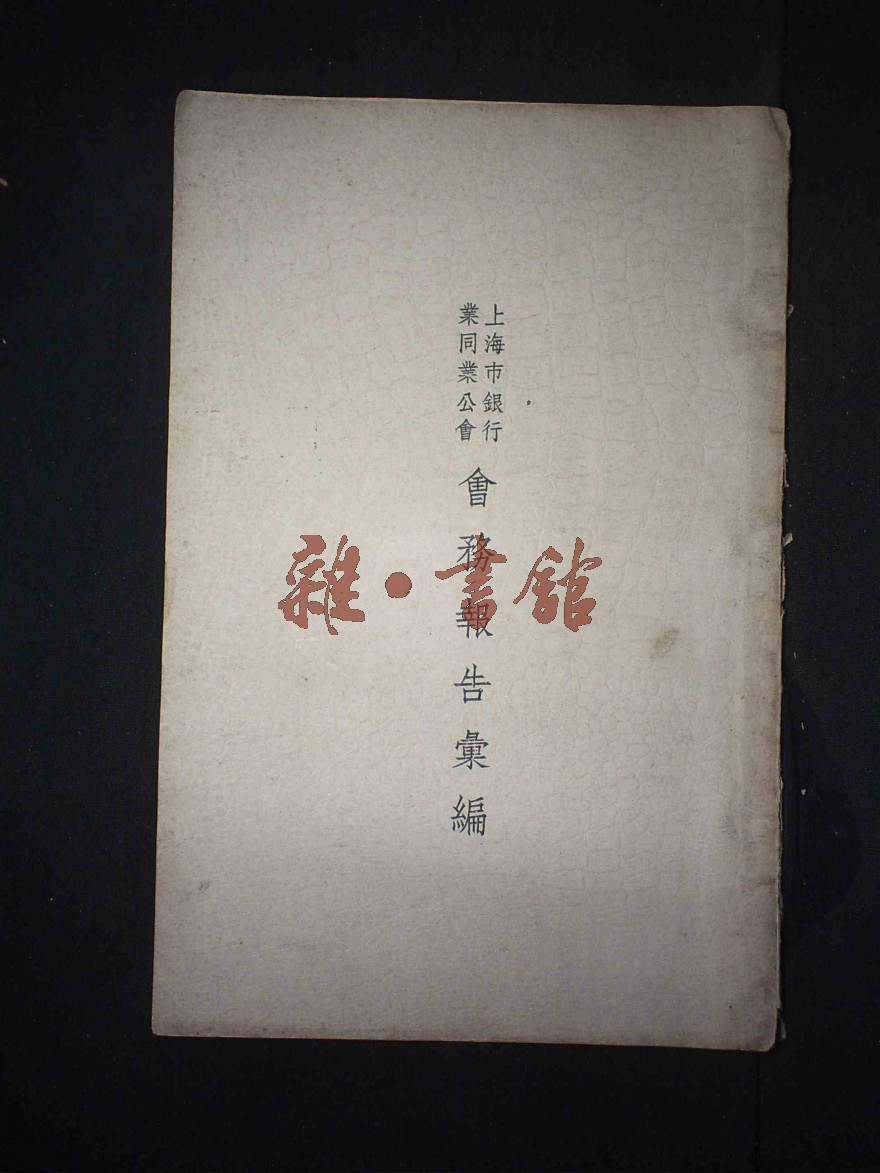 上海市銀行
業同業公會
會務報告彙編
雜·書館